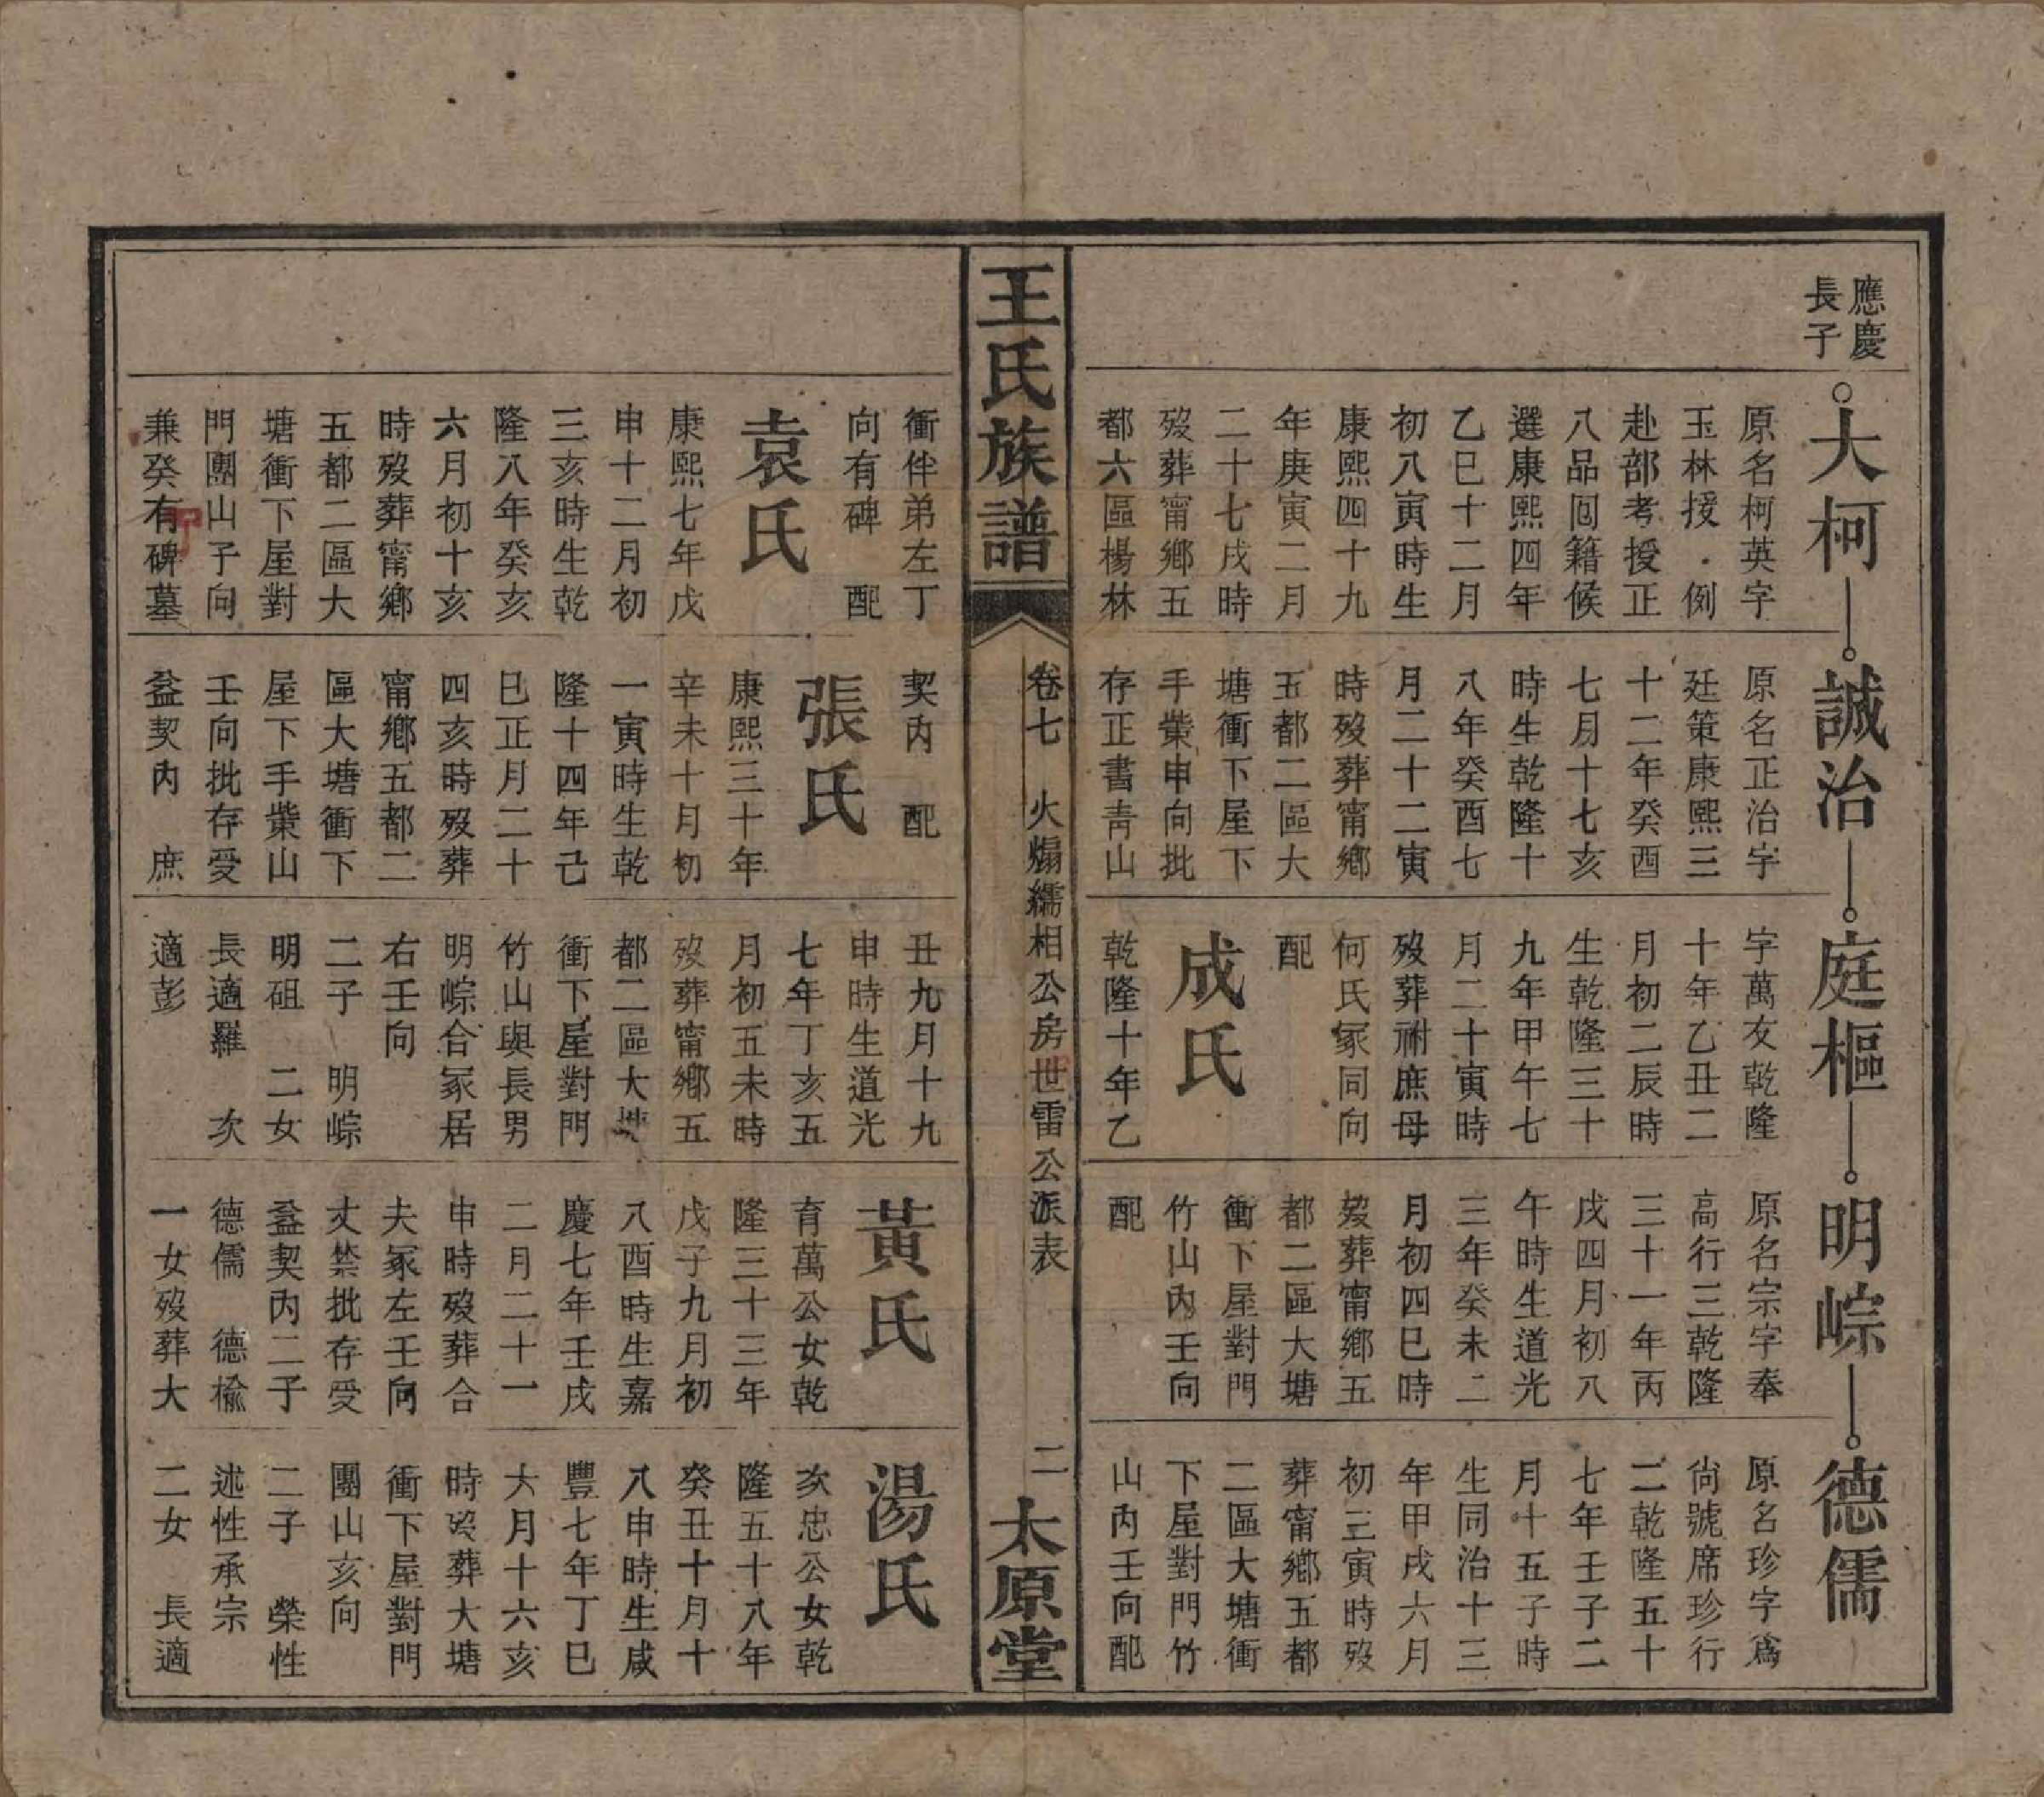 應慶
長子
大柯
原名柯英字
玉林援例
赴部考授正
八品囘籍候
選康熙四年
乙巳十二月
初八寅時生
康熙四十九
年庚寅二月
二十七戌時
歿葬甯鄉五
都六區楊林
衝伴弟左丁
向有碑 配
袁氏
康熙七年戊
申十二月初
三亥時生乾
隆八年癸亥
六月初十亥
時歿葬甯鄉
五都二區大
塘衝下屋對
門團山子向
兼癸有碑墓
誠治
原名正治字
廷策康熙三
十二年癸酉
七月十七亥
時生乾隆十
八年癸酉七
月二十二寅
時歿葬甯鄉
五都二區大
塘衝下屋下
手業申向批
存正書靑山
契內 配
張氏
康熙三十年
辛未十月初
一寅時生乾
隆十四年己
巳正月二十
四亥時歿葬
甯鄉五都二
區大塘衝下
屋下手業山
壬向批存受
益契內 庶
庭樞
字萬友乾隆
十年乙丑二
月初二辰時
生乾隆三十
九年甲午七
月二十寅時
歿葬祔庶母
何氏冢同向
配
成氏
乾隆十年乙
丑九月十九
申時生道光
七年丁亥五
月初五未時
歿葬甯鄉五
都二區大塘
衝下屋對門
竹山與長男
明崇合冢居
右壬向
二子 明崇
明砠 二女
長適羅 次
適彭
明崇
原名宗字奉
高行三乾隆
三十一年丙
戌四月初八
午時生道光
三年癸未二
月初四巳時
歿葬甯鄉五
都二區大塘
衝下屋對門
竹山內壬向
配
黃氏
育萬公女乾
隆三十三年
戊子九月初
八酉時生嘉
慶七年壬戌
二月二十一
申時歿葬合
夫冢左壬向
丈禁批存受
益契內二子
德儒 德楡
一女歿葬大
德儒
原名珍字爲
尙號席珍行
二乾隆五十
七年壬子二
月十五子時
生同治十三
年甲戌六月
初三寅時歿
葬甯鄉五都
二區大塘衝
下屋對門竹
山內壬向配
湯氏
亥忠公女乾
隆五十八年
癸丑十月十
八申時生咸
豐七年丁巳
六月十六亥
時歿葬大塘
衝下屋對門
團山亥向
二子 榮性
述性承宗
二女 長適
王氏族譜
卷七 火煸繻相公房世雷公派表
二
太原堂